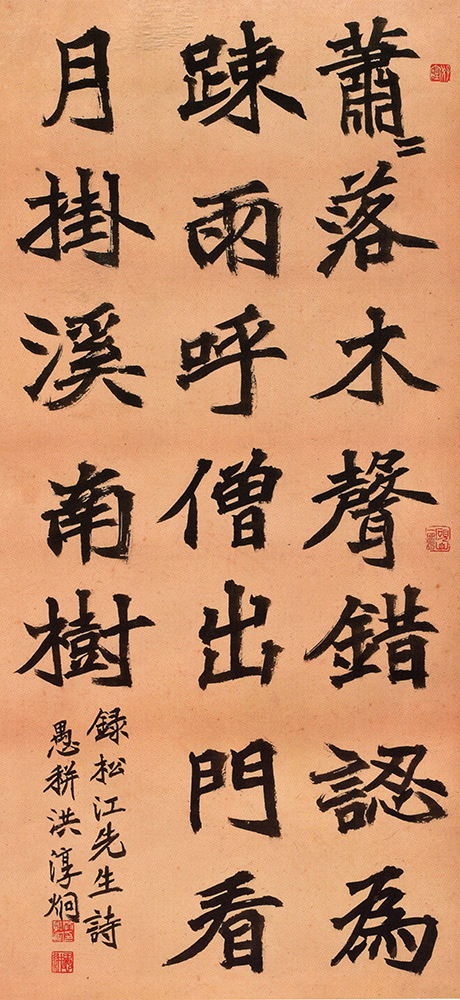 蕭〻落木聲錯認為
踈雨呼僧出門看
月掛溪南樹
録松江先生詩
愚洪淳炯